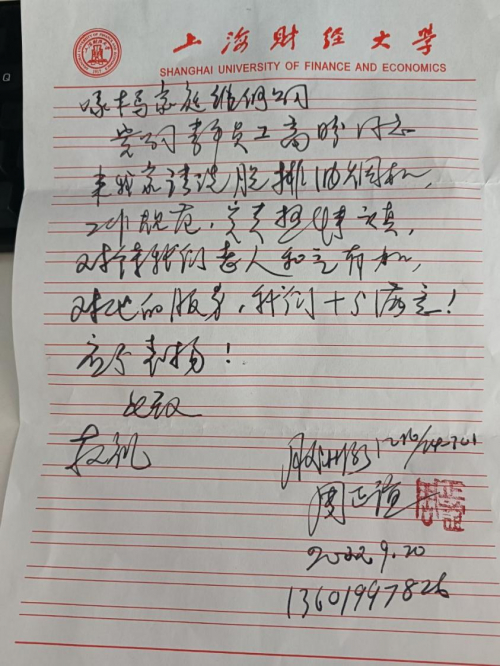 上海财经大学
SHANGHAI UNIVERSITY OF FINANCE AND ECONOMICS
啄木鸟家庭维修公司
贵公司青年员工高 同志
来我家清洗脱排油烟机,
工作规范,负责热情认真,
对待我们老人和蔼有礼,
对他的服务,我们十分满意!
应予表扬!
此致
敬礼
周正谊
2022.9.20
13601997826